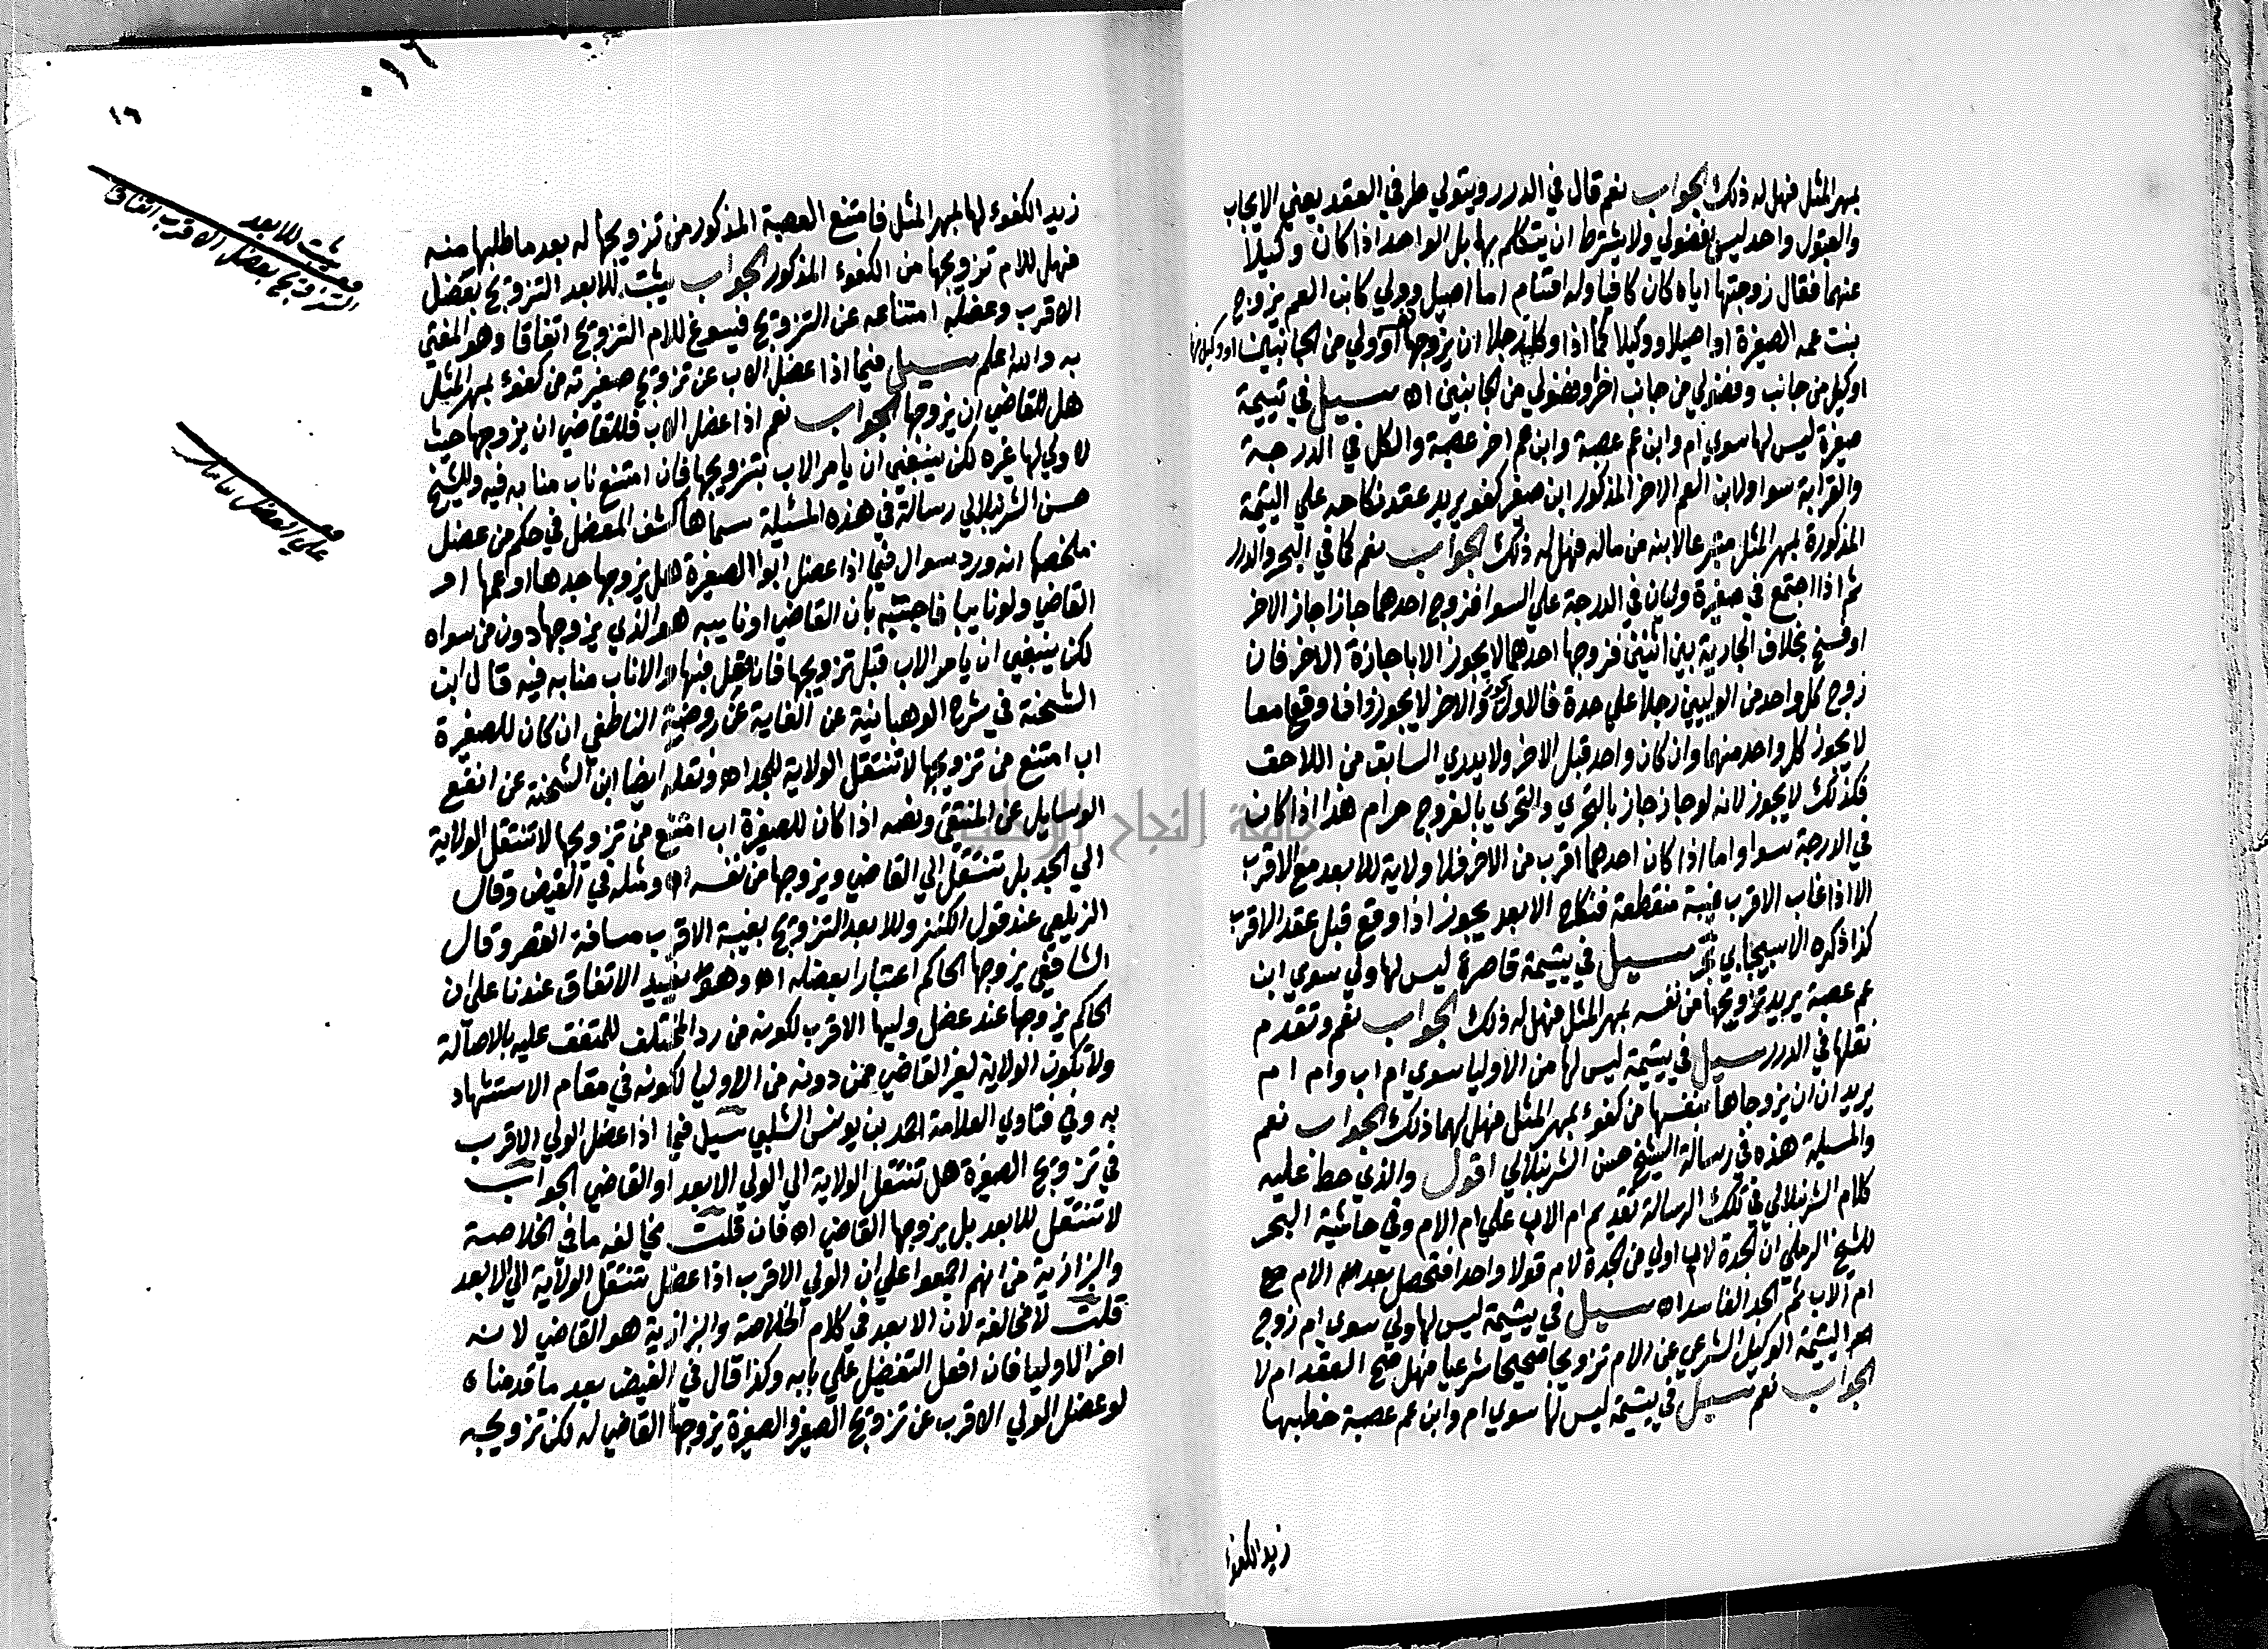 بمهر المثل فهل له ذلك الجواب نعم قال في الدرر ويتولي طرفي العقد يعني الايجاب
والقبول واحد ليس بفضولي ولا يشترط ان يتكلم بهما بل الواحد اذا كان وكيلا
عنهما فقال زوجتها اياه كان كافيا وله اقسام اما اصيل وولي كابن العم يزوج
بنت عمه الصغيرة او اصيلا ووكيلا كما اذا وكلته رجلا ان يزوجها نفسه او ولي من الجانبين او وكيل منهما
او وكيل من جانب وفضولي من جانب اخر او فضولي من الجانبين اه سيل في يتيمة
صغيرة ليس لها سوي ام وابن عم عصبة وابن عم اخر عصبة والكل في الدرجة
والقرابة سوا ولابن العم الاخر المذكور ابن صغير كفو يريد عقد نكاحه علي اليتيمة
المذكورة بمهر المثل متبرعا لابنه من ماله فهل له ذلك الجواب نعم كما في البحر والدرر
ثم اذا اجتمع في صغيرة وليان في الدرجة علي السوا فزوج احدهما جاز اجاز الاخر
او فسخ بخلاف الجارية بين اثنين فزوجها احدهما لا يجوز الا باجازة الاخر فان
زوج كل واحد من الوليين رجلا علي حدة فالاول يجوز والاخر لا يجوز واذا وقعا معا
لا يجوز كل واحد منهما وان كان واحد قبل الاخر ولا يدري السابق من اللاحق
فكذلك لا يجوز لانه لو جاز جاز بالتحري والتحري بالفروج حرام هذا اذا كان
في الدرجة سوا واما اذا كان احدهما اقرب من الاخر فلا ولاية للابعد مع الاقرب
الا اذا غاب الاقرب غيبة منقطعة فنكاح الابعد يجوز اذا وقع قبل عقد الاقرب
كذا ذكره الاسبيجابي سيل في يتيمة قاصرة ليس لها ولي سوي ابن
عم عصبة يريد تزويجها من نفسه بمهر المثل فهل له ذلك الجواب نعم وتقدم
نقلها في الدرر سيل في يتيمة ليس لها من الاوليا سوي ام اب وام ام
يريدان ان يزوجاها بنفسها من كفوء بمهر المثل فهل لهما ذلك الجواب نعم
والمسيلة هذه في رسالة الشيخ حسن الشرنبلالي اقول والذي حط عليه
كلام الشرنبلالي في تلك الرسالة تقديم ام الاب علي ام الام وفي حاشية البحر
للشيخ الرملي ان الجدة لاب اولي من الجدة لام قولا واحدا فتحصل بعد الام
ام الاب ثم الجد الفاسد اه سيل في يتيمة ليس لها ولي سوي ام زوج
اليتيمة الوكيل الشرعي عن الام تزويجا صحيحا شرعيا فهل صح العقد ام لا
الجواب نعم سيل في يتيمة ليس لها سوي ام وابن عم عصبة خطبها
زيد الكفوء
٠١٦
١٦
زيد الكفوء لها بمهر المثل فامتنع العصبة المذكور من تزويجها له بعد ما طلبها منه
فهل للام تزويجها من الكفوء المذكور الجواب يثبت للابعد التزويج بعضل
الاقرب وعضله امتناعه عن التزويج فيسوغ للام التزويج اتفاقا وهو المفتي
به والله اعلم سيل فيما اذا عضل الاب عن تزويج صغيرته من كفوء بمهر المثل
هل للقاضي ان يزوجها الجواب نعم اذا عضل الاب فللقاضي ان يزوجها حيث
لا ولي لها غيره لكن ينبغي ان يامر الاب بتزويجها فان امتنع ناب منابه فيه وللشيخ
حسن الشرنبلالي رسالة في هذه المسئلة سماها كشف المعضل في حكم من عضل
ملخصها انه ورد سوال فيما اذا عضل ابو الصغيرة هل يزوجها جدها او عمها ام
القاضي ولو نايبا فاجبته بان القاضي او نايبه هو الذي يزوجها دون من سواه
لكن ينبغي ان يامر الاب قبل تزويجها فان فعل فبها والا ناب منابه فيه قال ابن
الشحنة في شرح الوهبانية عن الغاية عن روضة الناطفي ان كان للصغيرة
اب امتنع من تزويجها لا تنتقل الولاية للجد اه ونقله ايضا ابن الشحنة عن انفع
الوسايل عن المنتقي ونصه اذا كان للصغيرة اب امتنع من تزويجها لا تنتقل الولاية
الي الجد بل تنتقل الي القاضي ويزوجها من نفسه اه ومثله في الفيض وقال
الزيلعي عند قول الكنز وللابعد التزويج بغيبة الاقرب مسافة القصر وقال
الشافعي يزوجها الحاكم اعتبارا بعضله اه وهو يفيد الاتفاق عندنا علي ان
الحاكم يزوجها عند عضل وليها الاقرب لكونه من رد المختلف للمتفق عليه بالاصالة
ولا تكون الولاية لغير القاضي ممن دونه من الاوليا لكونه في مقام الاستشهاد
به وفي فتاوي العلامة احمد بن يونس الشلبي سيل فيما اذا عضل الولي الاقرب
في تزويج الصغيرة هل تنتقل الولاية الي الولي الابعد او القاضي الجواب
لا تنتقل للابعد بل يزوجها القاضي اه فان قلت يخالفه ما في الخلاصة
والبزازية من انهم اجمعوا علي ان الولي الاقرب اذا عضل تنتقل الولاية الي الابعد
قلت لا مخالفة لان الابعد في كلام الخلاصة والبزازية هو القاضي لانه
اخر الاوليا فان افعل التفضيل علي بابه وكذا قال في الفيض بعد ما قدمناه
لو عضل الولي الاقرب عن تزويج الصغير والصغيرة يزوجها القاضي له لكن تزويجه
يثبت للابعد
التزويج بعضل الاقرب اتفاقا
علي العضل